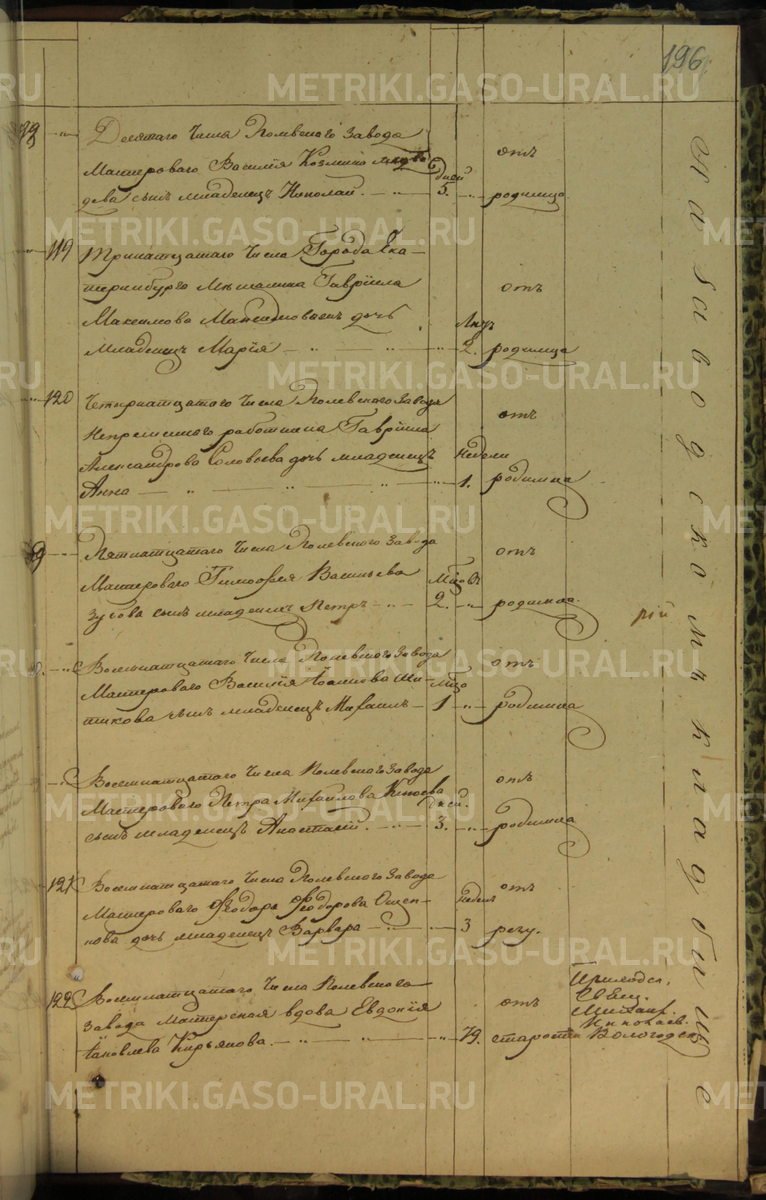 196
Десятаго числа Полевского завода
Мастероваго Василія Козмина
сынъ младенецъ Николай дней 5. отъ родимца
119 Тринатцатаго числа Города Ека-
теринбурга Мѣщанина Гавріила
Максимова дочь
младенецъ Марія 2. отъ родимца
120 Четырнатцатаго числа Полевского завода
Непремѣннаго работника Гавріила
Александрова Соловьева дочь младенецъ
Анна недели 1. отъ родимца
Пятнатцатаго числа Полевского завода
Мастероваго Тимофея Васильева
Зуева сынъ младенецъ Петръ 2. отъ родимца
рій
Восемнатцатаго числа Полевского завода
Мастероваго Василія
сынъ младенецъ Михаилъ 1 отъ родимца
Восемнатцатаго числа Полевского завода
Мастероваго Петра Михаилова
сынъ младенецъ Анастасій. дней. 3. отъ родимца
121 Восемнатцатаго числа Полевского завода
Мастероваго Феодора Феодорова Ощеп-
кова дочь младенецъ Варвара недель 3 отъ
122 Восемнатцатаго числа Полевского
завода Мастерская вдова Евдокія
Яковлева Кирьянова. 79. отъ старости
Приходск.
Свящ.
Михаил.
Николаев.
Вологодск
На заводскомъ кладбищѣ
METRIKI.GASO-URAL.RU